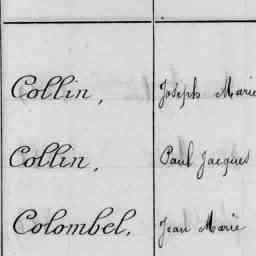 Collin, Joseph Marie
Collin, Paul Jacques
Colombel, Jean Marie